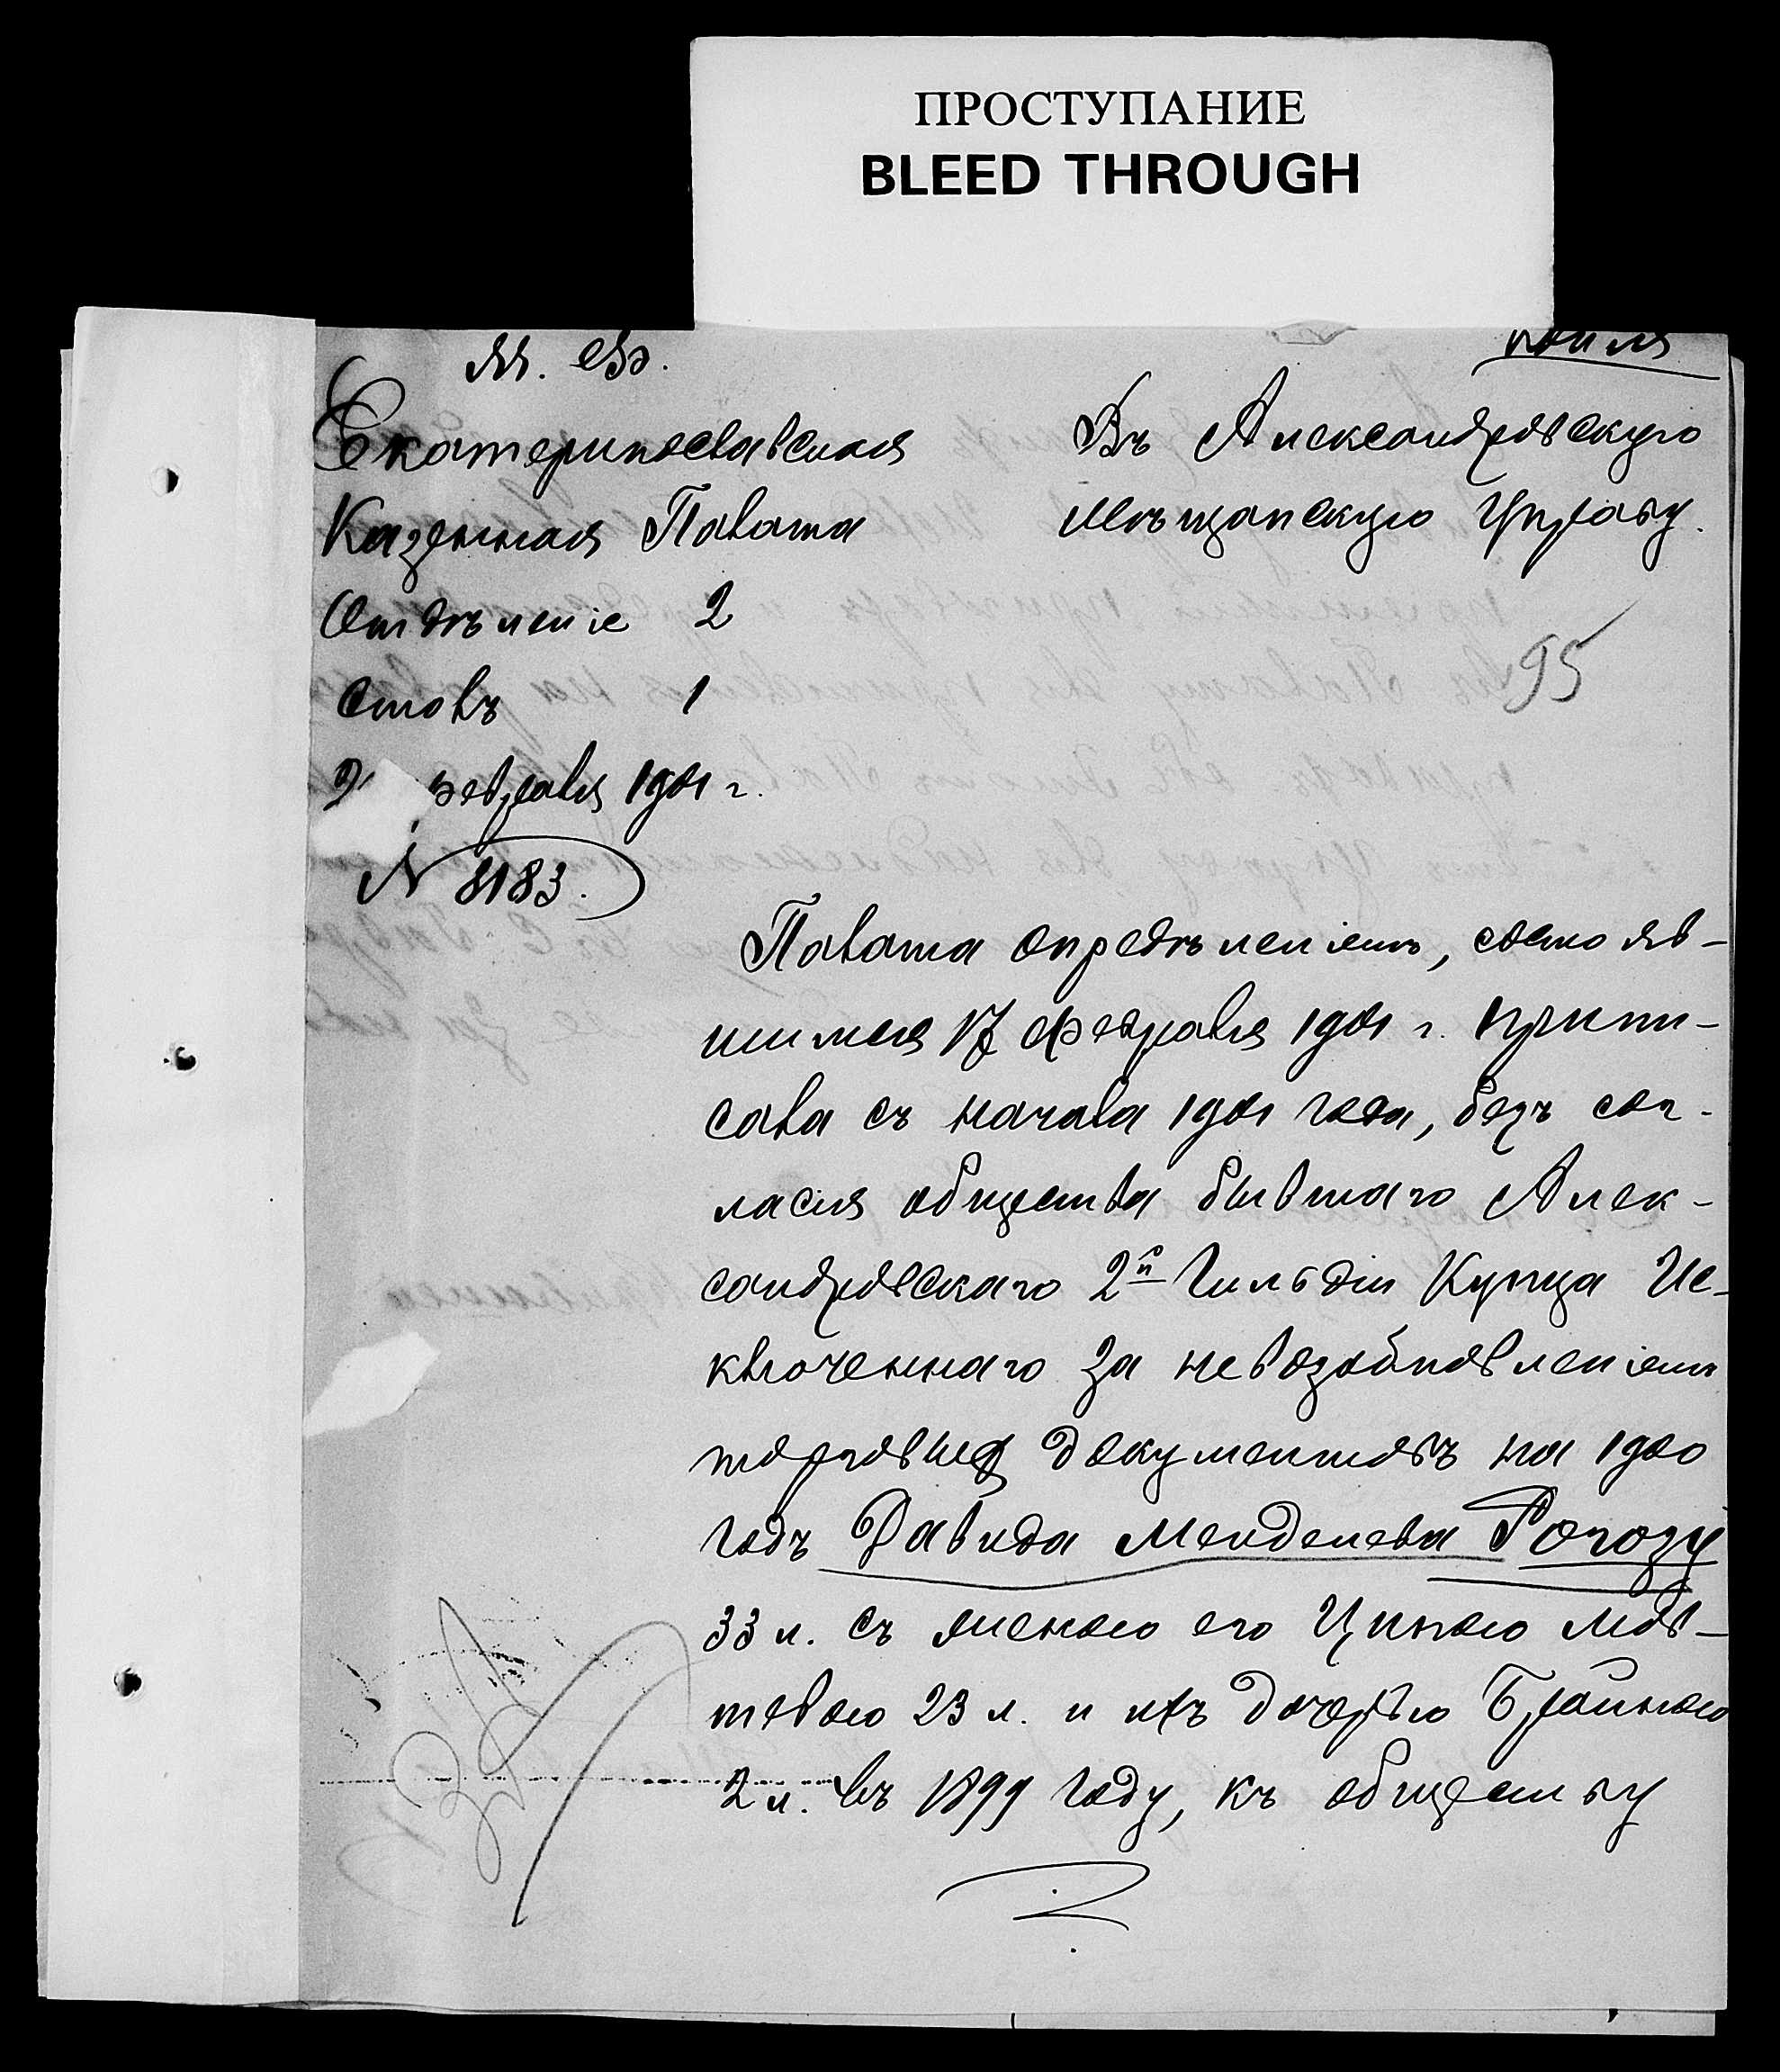 ПРОСТУПАНИЕ
BLEED THROUGH
копия
М. Ф.
Екатеринославская
Казенная Палата
Отдѣленіе 2
Столъ 1
февраля 1901 г.
N 8183.
Въ Александровскую
Мѣщанскую Управу.
95
Палата опредѣленіемъ, состояв-
шимся 17 февраля 1901 г. припи-
сала съ начала 1901 года, безъ сог-
ласия общества бывшаго Алек-
сандровскаго 2й Гильдіи Купца Ис-
ключеннаго за невозобновленіемъ
торговых документовъ на 1900
годъ Давида Менделева Рогозу
33 л. съ женою его Ципою Мов-
шевою 23 л. и ихъ дочерью Брайною
2 л. въ 1899 году, къ обществу